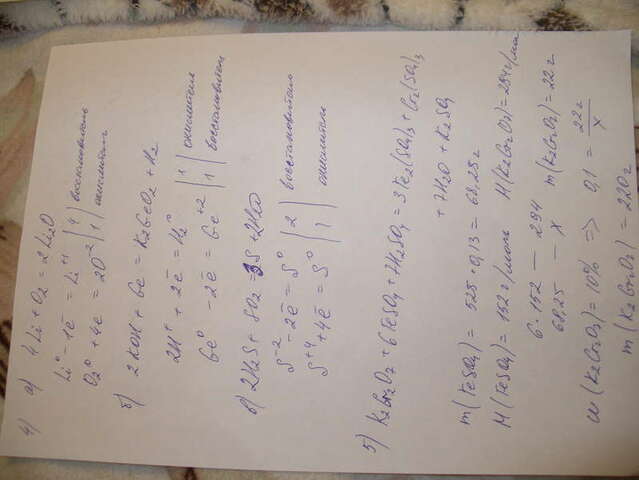 4) a) 4Li + O2 = 2Li2O
Li⁰ - 1ē = Li⁺¹ | 4 | восстановитель
O2⁰ + 4ē = 2O⁻² | 1 | окислитель
б) 2KOH + Be = K2BeO2 + H2
2H⁺ + 2ē = H2⁰ | 1 | окислитель
Be⁰ - 2ē = Be⁺² | 1 | восстановитель
в) 2H2S + SO2 = 3S + 2H2O
S⁻² - 2ē = S⁰ | 2 | восстановитель
S⁺⁴ + 4ē = S⁰ | 1 | окислитель
5) K2Cr2O7 + 6FeSO4 + 7H2SO4 = 3Fe2(SO4)3 + Cr2(SO4)3
+ 7H2O + K2SO4
m(FeSO4) = 525 · 0,13 = 68,25 г
M(FeSO4) = 152 г/моль M(K2Cr2O7) = 294 г/моль
6·152 — 294
68,25 — x m(K2Cr2O7) = 22 г
w(K2Cr2O7) = 10% => 0,1 = 22 г / x
m(K2Cr2O7) = 220 г